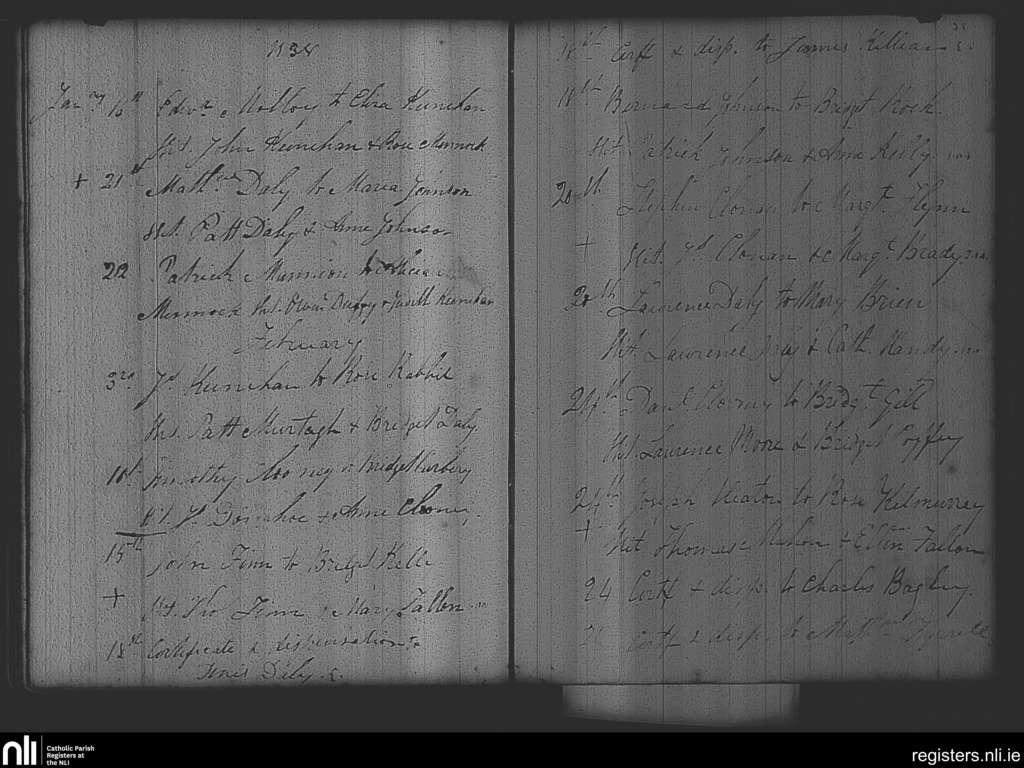 1838
Jan.ry 16th Edwd. Molloy to Eliza Keenehan
Wit. John Keenehan & Rose Minnock
+ 21st Matthew Daly to Maria Johnson
Wit. Patt Daly & Anne Johnson
22 Patrick Munnion to
Minnock Wit. Edwd. Duffy & Judith Keenehan
February
3rd Js. Keenehan to Rose Rabbit
Wit. Patt Murtagh & Bridget Daly
10th Timothy Looney to Bridget
Wit. Donahoe & Anne Clooney
15th John Finn to Bridget Kelly
+ Wit. Tho. Finn & Mary Fallon
18th Certificate & dispensation to
Daly
18th Certf & disp. to James Killian
18th Bernard Johnson to Bridgt Rock
Wit. Patrick Johnson & Anne Reilly
20th Stephen Clonan to Margt. Flynn
+ Wit. Js. Clonan & Margt. Brady
20th Lawrence Daly to Mary Brien
Wit. Lawrence & Cath. Handy
24th Danl. to Bridgt. Gill
Wit. Laurence Moore & Bridget Coffey
24th Joseph Heaton to Rose Kilmurrey
+ Wit Thomas Mahon & Ellen Fallon
24 Certf & disp. to Charles Bagley.
Certf & disp. to Matthew Tyrrell
nli
Catholic Parish
Registers at
the NLI
registers.nli.ie